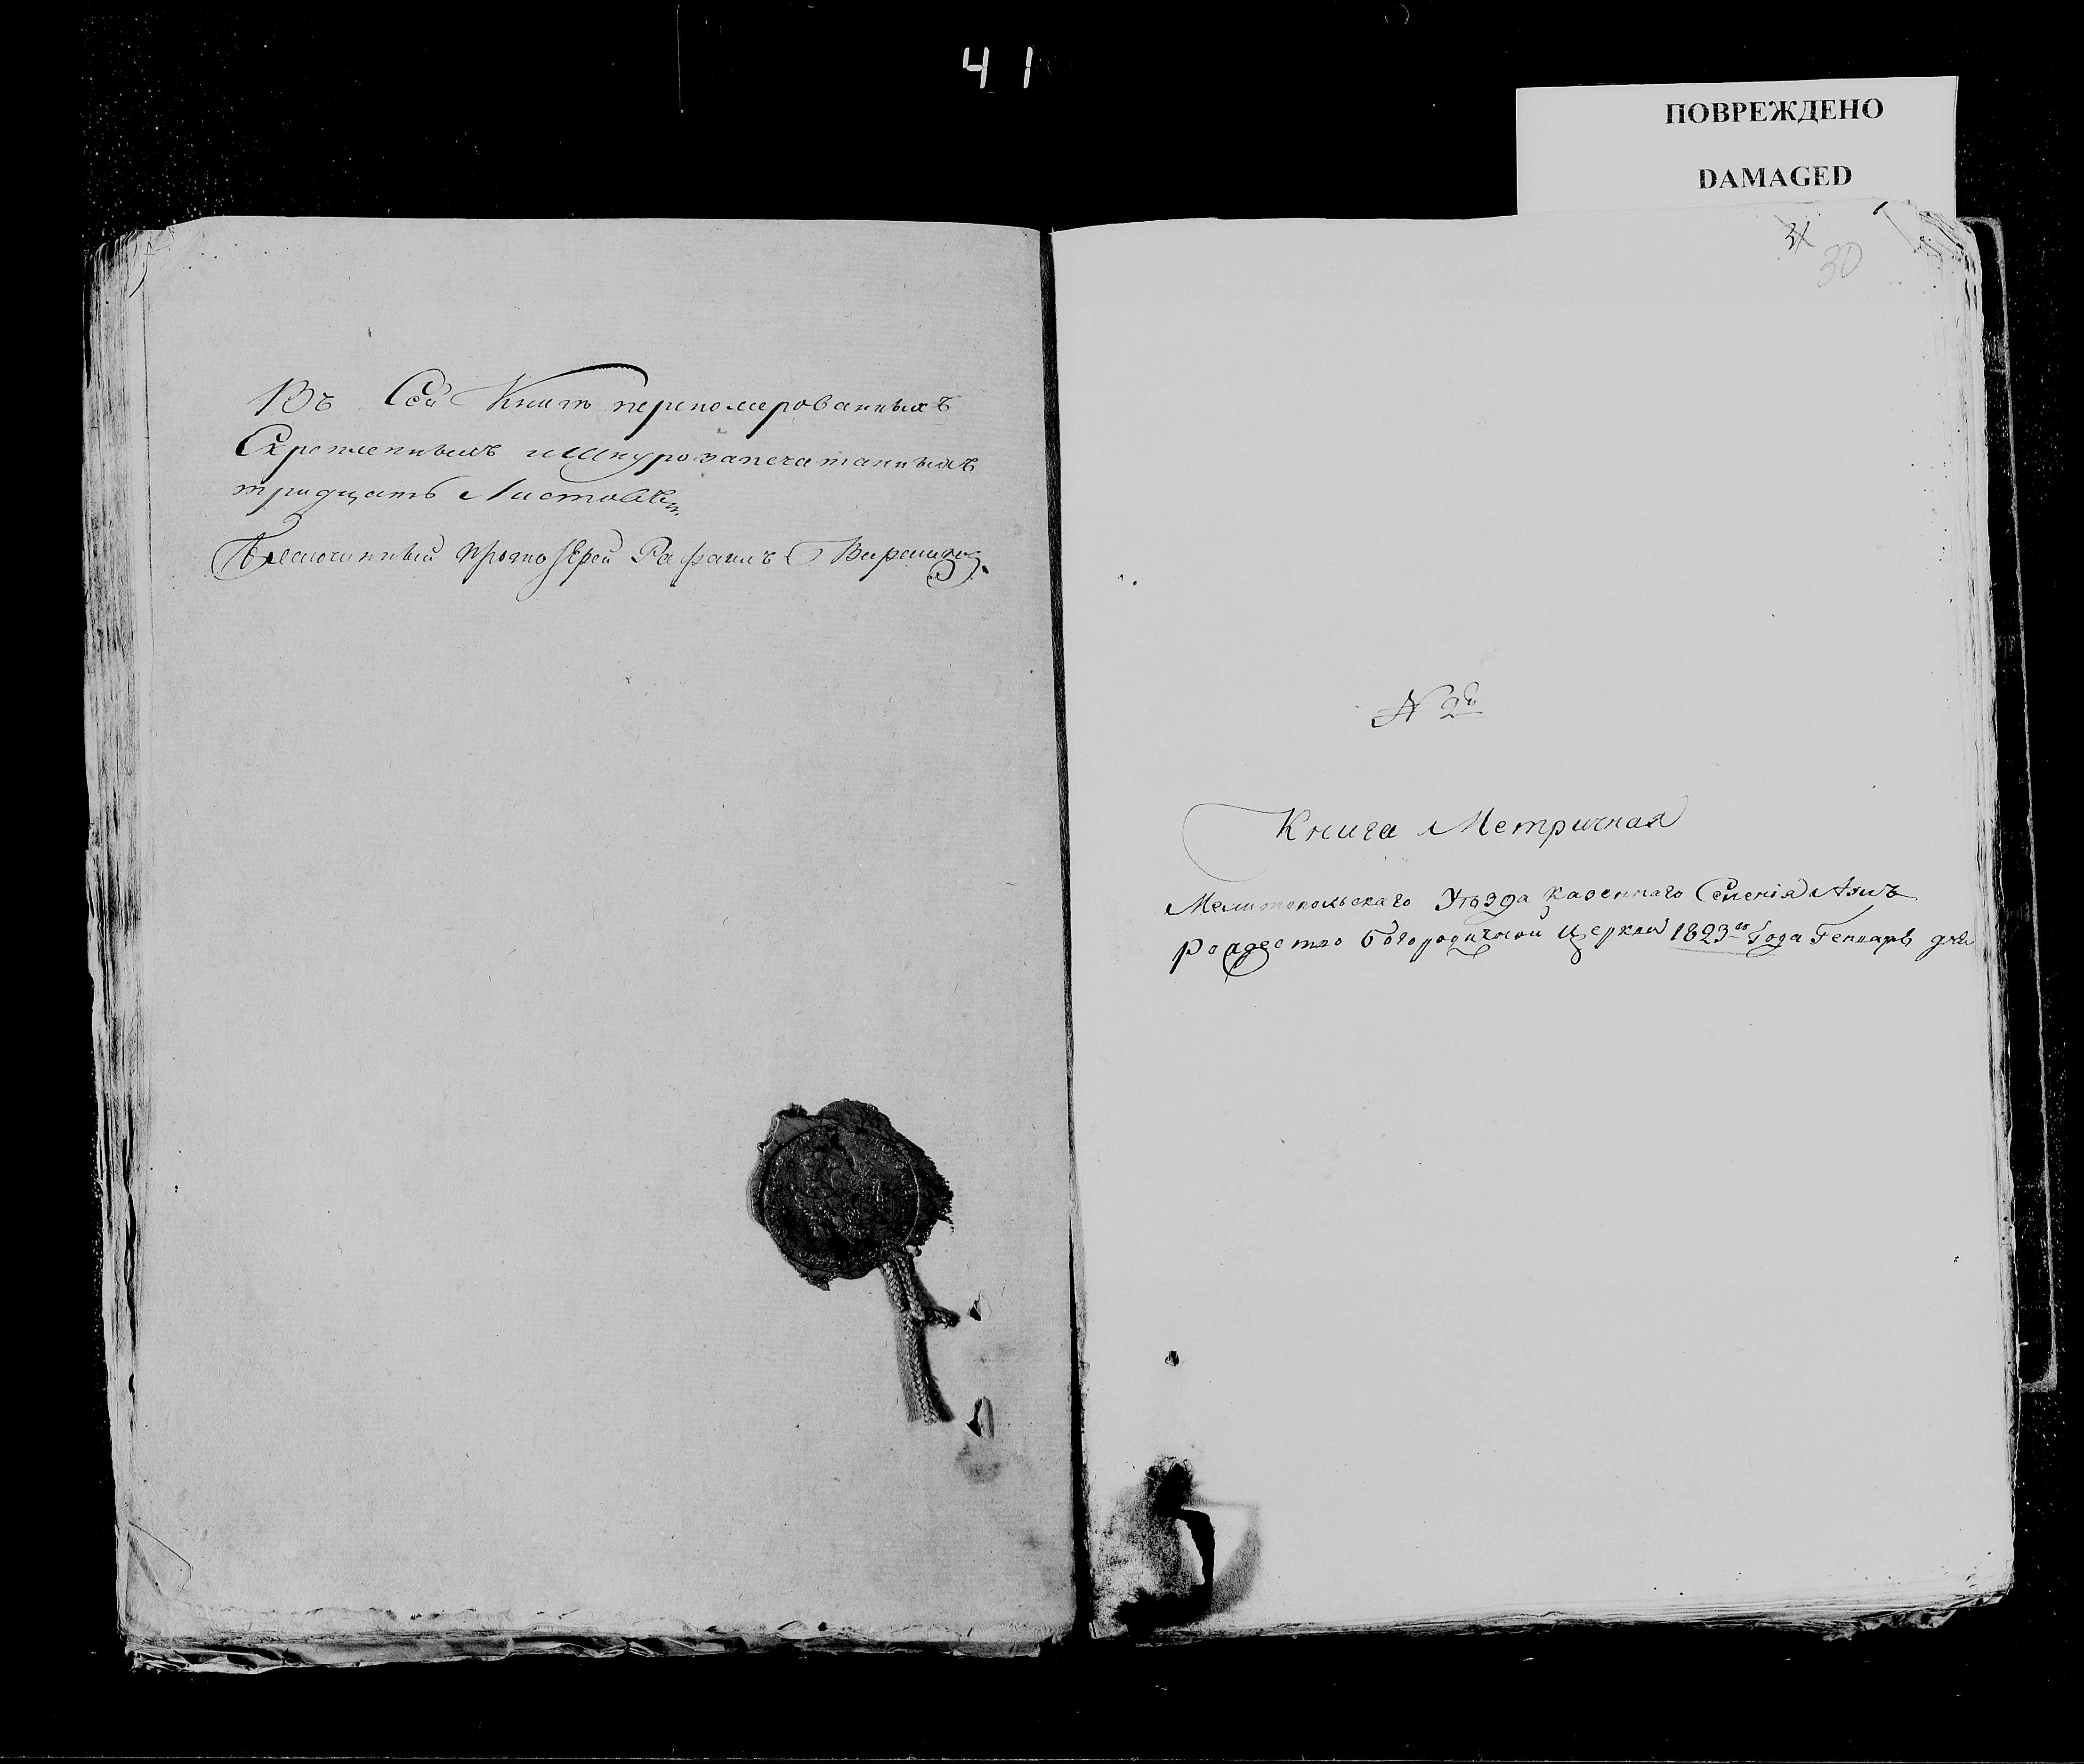 41
ПОВРЕЖДЕНО
DAMAGED
31
30
Въ Сей Книгѣ перномерованныхъ
Скрепленныхъ и Шнурозапечатанныхъ
тридцать Листовъ
Благочинный протоІерей Рафаилъ
N 2й
Книга Метричная
Мелитопольскаго Уѣзда казеннаго Селенія
рождество богородичной Церкви 1823го Года Генваря дня